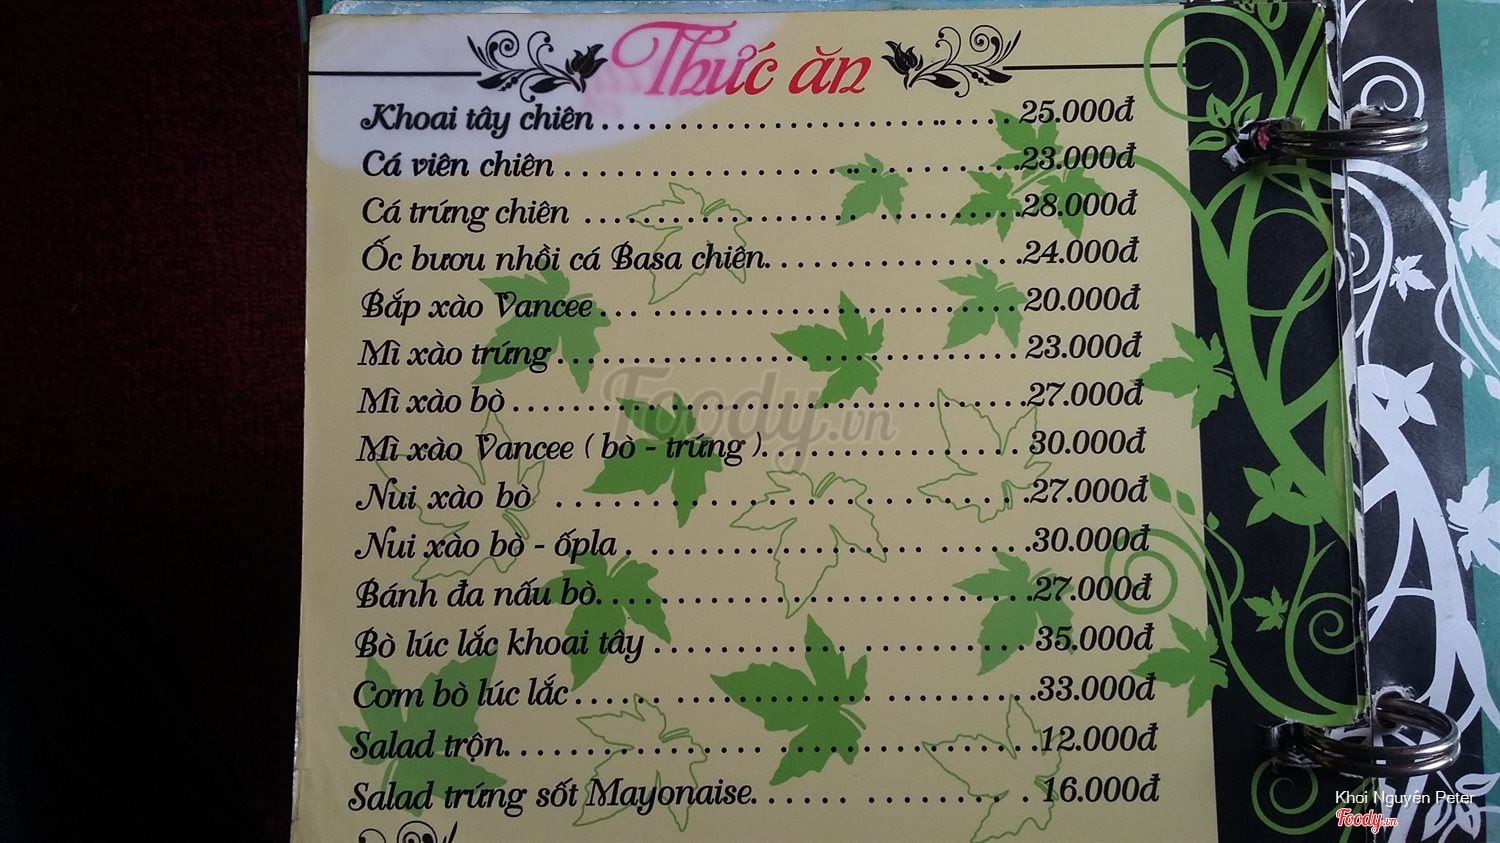 Thức ăn
Khoai tây chiên ........................ 25.000đ
Cá viên chiên ........................ 23.000đ
Cá trứng chiên ........................ 28.000đ
Ốc bươu nhồi cá Basa chiên ................ 24.000đ
Bắp xào Vancee ........................ 20.000đ
Mì xào trứng ........................ 23.000đ
Mì xào bò ........................ 27.000đ
Mì xào Vancee ( bò - trứng ) ................ 30.000đ
Nui xào bò ........................ 27.000đ
Nui xào bò - ốpla ........................ 30.000đ
Bánh đa nấu bò ........................ 27.000đ
Bò lúc lắc khoai tây ........................ 35.000đ
Cơm bò lúc lắc ........................ 33.000đ
Salad trộn ........................ 12.000đ
Salad trứng sốt Mayonaise ................ 16.000đ
Foody.vn
Khoi Nguyên Peter
Foody.vn